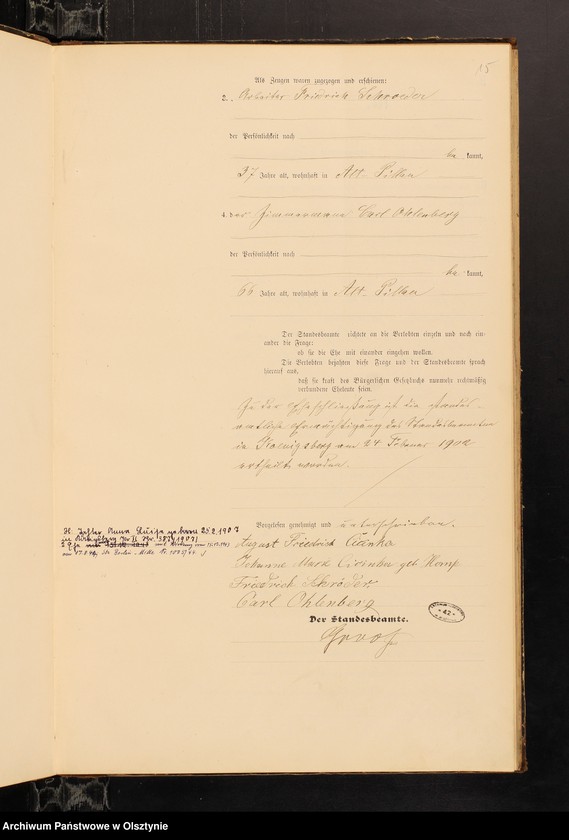 15
Als Zeugen waren zugezogen und erschienen:
2. Arbeiter Friedrich Schroeder
der Persönlichkeit nach
be kannt,
37 Jahre alt, wohnhaft in Alt Pillau
4. der Zimmermann Carl Ohlenberg
der Persönlichkeit nach
be kannt,
66 Jahre alt, wohnhaft in Alt Pillau
Der Standesbeamte richtete an die Verlobten einzeln und nach ein-
ander die Frage:
ob sie die Ehe mit einander eingehen wollen.
Die Verlobten bejahten diese Frage und der Standesbeamte sprach
hierauf aus,
daß sie kraft des Bürgerlichen Gesetzbuchs nunmehr rechtmäßig
verbundene Eheleute seien.
Zu der Eheschließung ist die standes-
amtliche Ermächtigung des Standesbeamten
in Koenigsberg vom 24 Februar 1902
ertheilt worden.
Vorgelesen, genehmigt und unterschrieben.
August Friedrich
Johanne Marie geb
Friedrich Schröder
Carl Ohlenberg
Der Standesbeamte.
H: Tochter Anna Luise geboren 28.2.1903
42
Archiwum Państwowe w Olsztynie